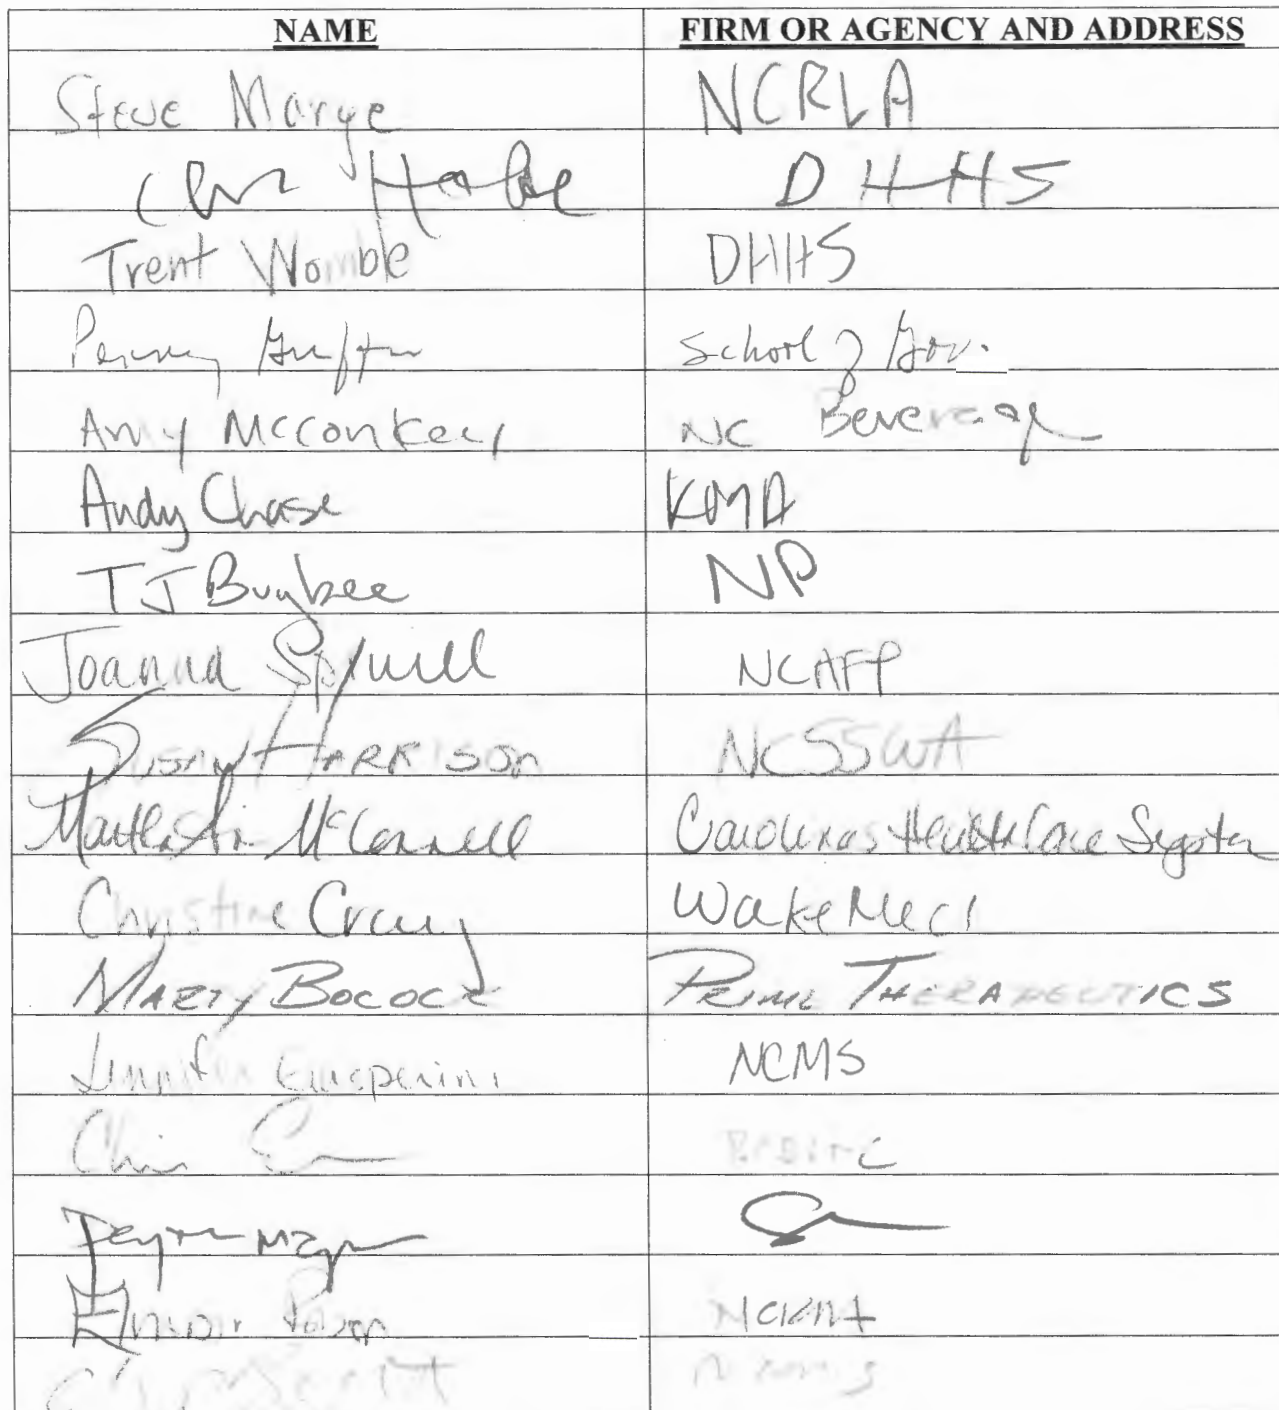 NAME FIRM OR AGENCY AND ADDRESS
Steve Mange NCRLA
DHHS
Trent Womble DHHS
Penny Griffin School of Gov.
Amy McConkey NC Beverage
Andy Chase KMA
TJ Bugbee NP
Joanna Spruill NCAFP
Susan Harrison NCSSWA
McConnell Carolinas HealthCare System
Christine Craig WakeMed
Marty Bococe Prime Therapeutics
Jennifer Gasperini NCMS
Chris
Peyton